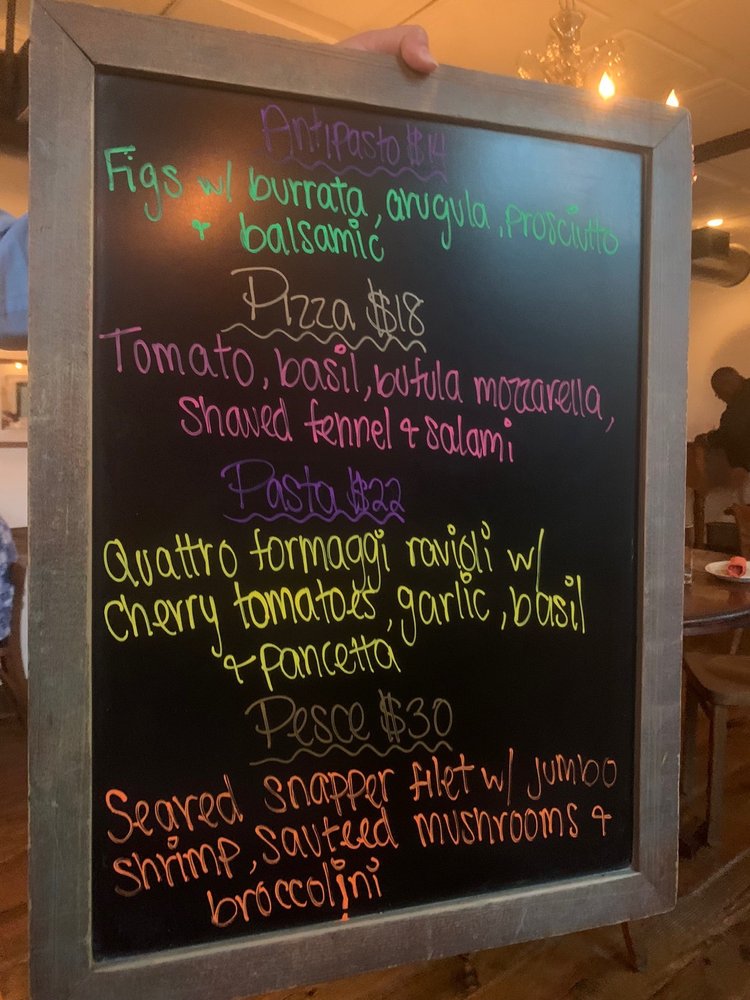 Antipasto $14
Figs w/ burrata, arugula, prosciutto
+ balsamic
Pizza $18
Tomato, basil, bufula mozzarella,
Shaved fennel + salami
Pasta $22
Quattro formaggi ravioli w/
cherry tomatoes, garlic, basil
+ pancetta
Pesce $30
Seared snapper filet w/ jumbo
shrimp, sauteed mushrooms +
broccolini